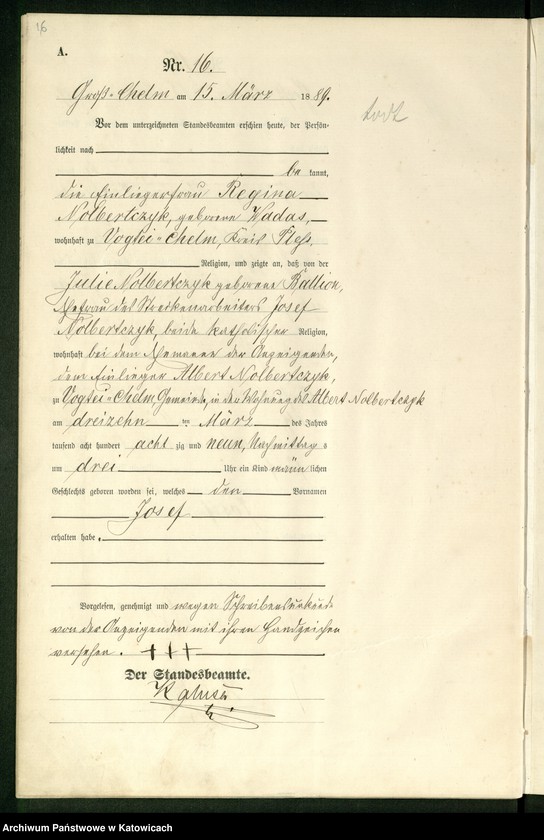 16
A.
Nr. 16.
Groß-Chelm am 15. März 1889.
todt
Vor dem unterzeichneten Standesbeamten erschien heute, der Persön-
lichkeit nach
be kannt,
die Einliegerfrau Regina
Nolbertczyk, geborene Wadas,
wohnhaft zu Vogtei-Chelm, Kreis Pleß,
Religion, und zeigte an, daß von der
Julie Nolbertczyk geborene Ballion,
Ehefrau des Streckenarbeiters Josef
Nolbertczyk, beide katholischer Religion,
wohnhaft bei dem Ehemanne der Anzeigenden,
dem Einlieger Albert Nolbertczyk,
zu Vogtei-Chelm Gemeinde, in der Wohnung des Albert Nolbertczyk
am dreizehn ten März des Jahres
tausend acht hundert acht zig und neun, Nachmittag s
um drei Uhr ein Kind männ lichen
Geschlechts geboren worden sei, welches den Vornamen
Josef
erhalten habe.
Vorgelesen, genehmigt und wegen Schreibensunkunde
von der Anzeigenden mit ihren Handzeichen
versehen. +++
Der Standesbeamte.
Archiwum Państwowe w Katowicach